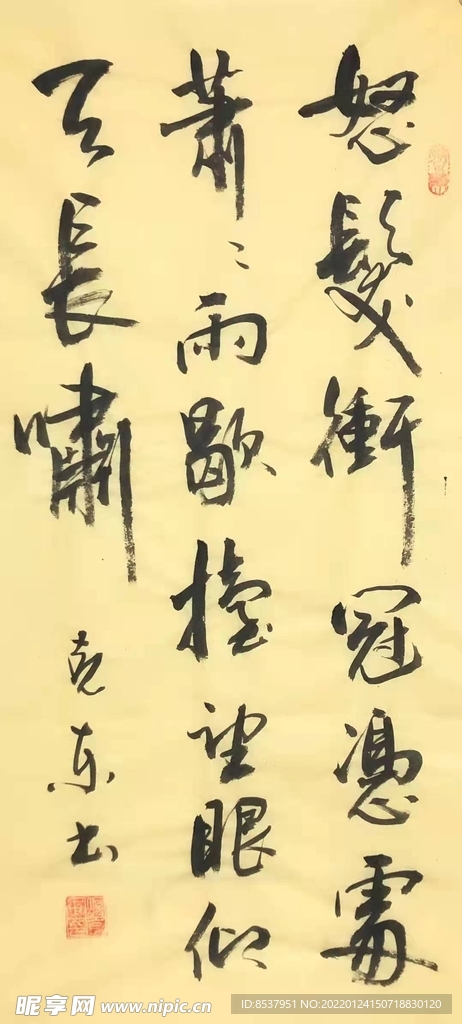 怒髮衝冠憑處
蕭〻雨歇擡望眼仰
天長嘯
克东书
昵享网 www.nipic.cn
ID:8537951 NO:20220124150718830120